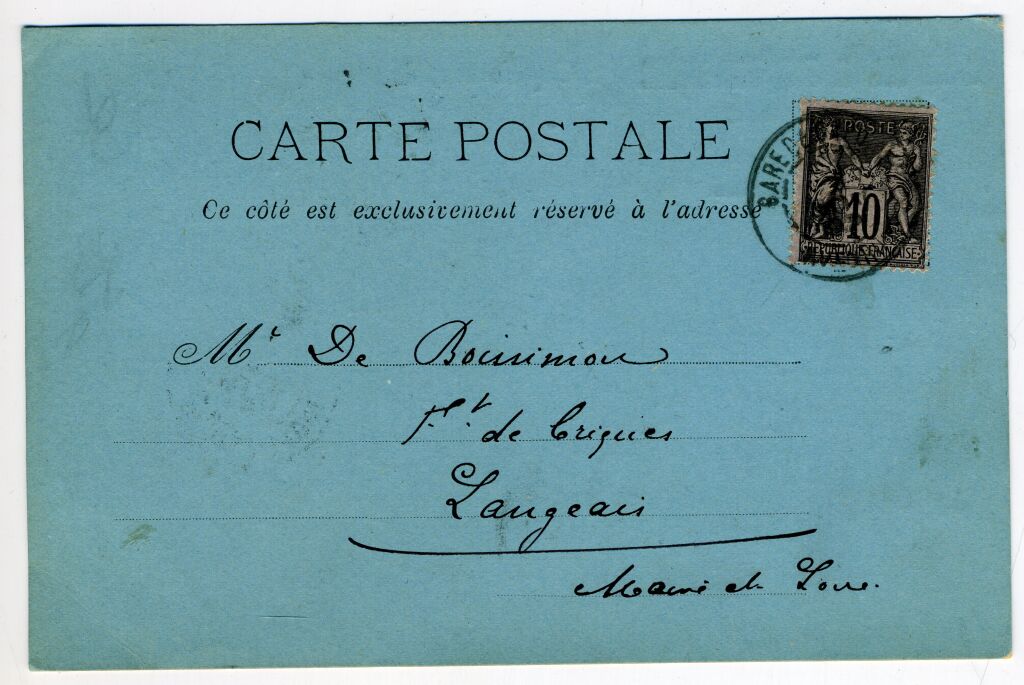 CARTE POSTALE
Ce côté est exclusivement réservé à l'adresse
GARE D
POSTE
10
REPUBLIQUE FRANÇAISE
Mr De Boissimon
Ft de Briques
Langeais
Maine et Loire.